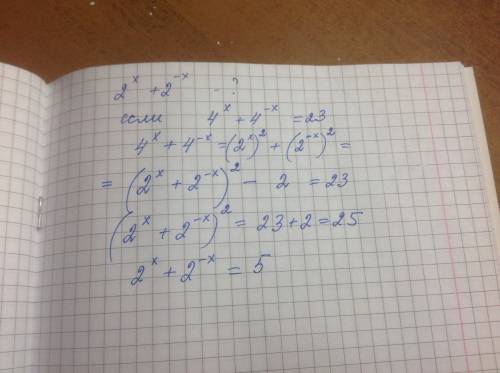 2^x + 2^-x - ?
если 4^x + 4^-x = 23
4^x + 4^-x = (2^x)^2 + (2^-x)^2 =
= (2^x + 2^-x)^2 - 2 = 23
(2^x + 2^-x)^2 = 23+2=25
2^x + 2^-x = 5